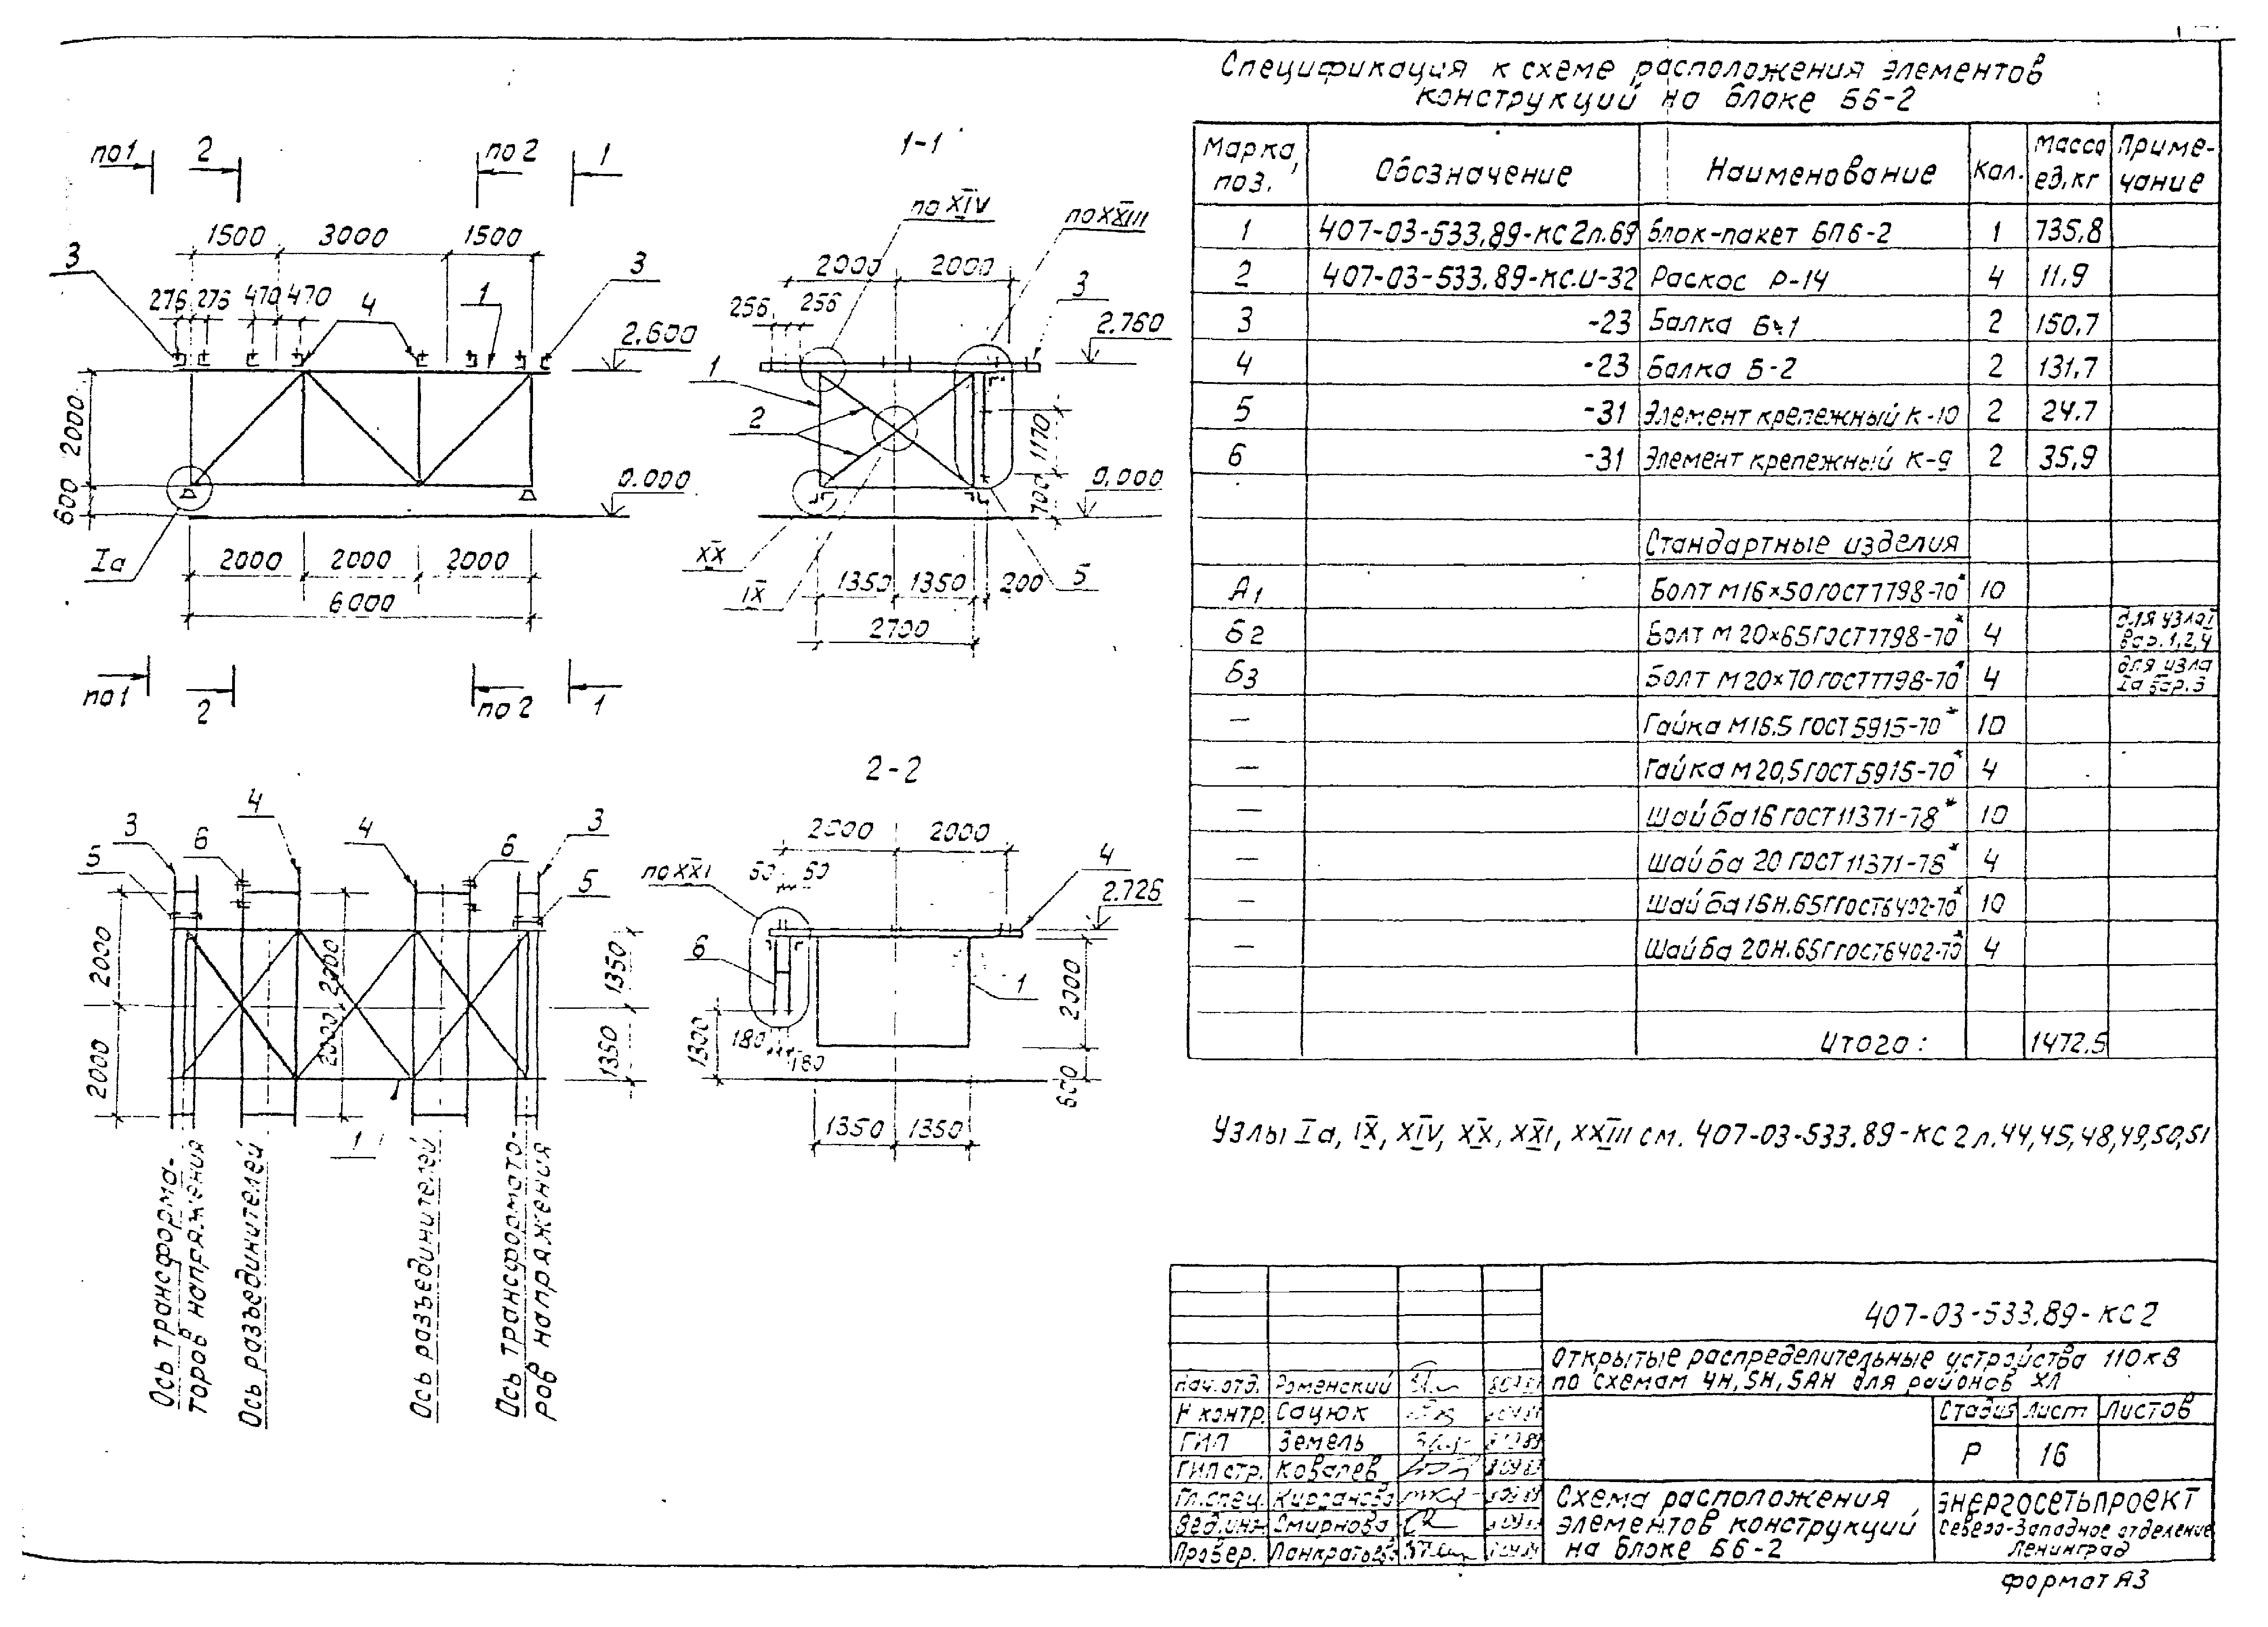 Спецификация к схеме расположения элементов
конструкций на блоке Б6-2
Марка, поз. Обозначение Наименование Кол. Масса ед, кг Приме-чание
1 407-03-533.89-КС2л.69 Блок-пакет БП6-2 1 735,8
2 407-03-533.89-КС.И-32 Раскос Р-14 4 11,9
3 -23 Балка Б-1 2 150,7
4 -23 Балка Б-2 2 131,7
5 -31 Элемент крепежный К-10 2 24.7
6 -31 Элемент крепежный К-9 2 35,9
Стандартные изделия
А1 Болт М16×50 ГОСТ 7798-70* 10
Б2 Болт М20×65 ГОСТ 7798-70* 4 для узла Вар. 1,2,4
Б3 Болт М20×70 ГОСТ 7798-70* 4 для узла Iа Вар. 3
— Гайка М16.5 ГОСТ 5915-70* 10
— Гайка М20,5 ГОСТ 5915-70* 4
— Шайба 16 ГОСТ 11371-78* 10
— Шайба 20 ГОСТ 11371-78* 4
— Шайба 16Н.65Г ГОСТ 6402-70* 10
— Шайба 20Н.65Г ГОСТ 6402-70* 4
Итого: 1472.5
Узлы Iа, IX, XIV, XX, XXI, XXIII см. 407-03-533.89-КС2 л.44,45,48,49,50,51
по1 2 по2 1
1500 3000 1500
3 3
276 276 470 470 4 1
2.600
2000
600
0.000
Iа
2000 2000 2000
6000
по1 2 по2 1
1-1
по XIV по XXIII
2000 2000
3
256 256
2.760
1
2
1170
700
0,000
XX
IX
1350 1350 200
5
2700
3 4 4 3
5 6 6 5
2000 2000
2000 2000
1350
1350
1
Ось трансформа-
торов напряжения
Ось разъединителей
Ось разъединителей
Ось трансформато-
ров напряжения
2-2
2000 2000
по XXI
50 50
4
2.726
6
1
2000
1300
180
180
600
1350 1350
407-03-533.89-КС2
Открытые распределительные устройства 110кВ
по схемам 4Н, 5Н, 5АН для районов ХЛ
Нач.отд. Роменский
Н контр. Сацюк
ГИП Земель
ГИП стр. Ковалев
Гл.спец. Кирсанова
Вед.инж. Смирнова
Провер.
Стадия Лист Листов
Р 16
Схема расположения
элементов конструкций
на блоке Б6-2
ЭНЕРГОСЕТЬПРОЕКТ
Северо-Западное отделение
Ленинград
формат А3